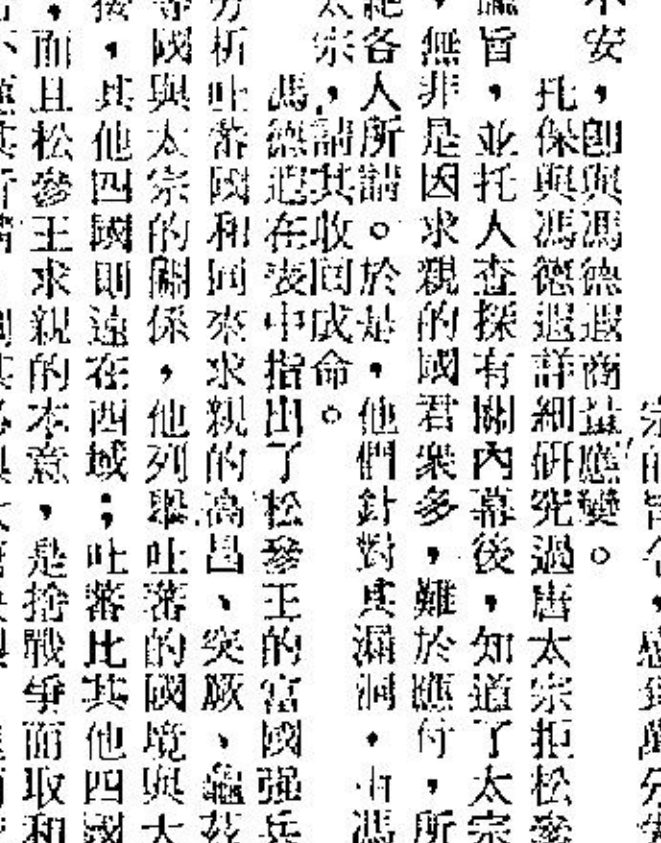 宗的旨令，感到萬分
不安，卽與馮德遐商量應變。
扎保與馮德遐詳細研究過唐太宗拒松參
臨旨，並托人查探有關內幕後，知道了太宗
，無非是因求親的國君衆多，難於應付，所
絕各人所請。於是，他們針對其漏洞，由馮
太宗，請其收回成命。
馮德遐在表中指出了松參王的富國强兵
析吐蕃國和同來求親的高昌、突厥、龜茲
等國與太宗的關係，他列舉吐蕃的國境，與大
接，其他四國則遠在西域；吐蕃比其他四國
，而且松參王求親的本意，是捨戰爭而取和